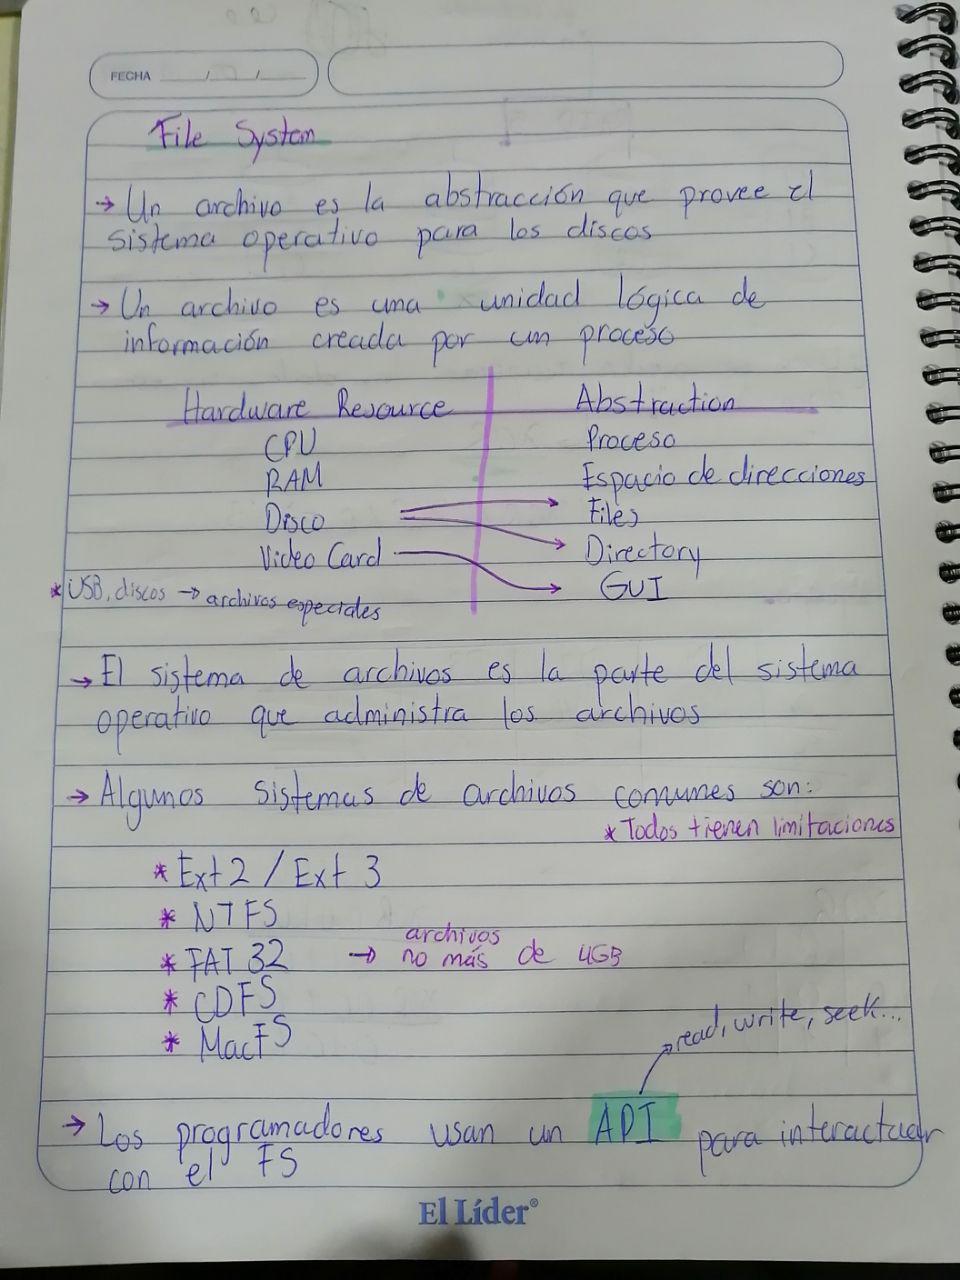 FECHA / /
File System
→ Un archivo es la abstracción que provee el
sistema operativo para los discos
→ Un archivo es una unidad lógica de
información creada por un proceso
Hardware Resource Abstraction
CPU Proceso
RAM Espacio de direcciones
Disco Files
Video Card Directory
GUI
* USB, discos → archivos especiales
→ El sistema de archivos es la parte del sistema
operativo que administra los archivos
→ Algunos sistemas de archivos comunes son:
* Todos tienen limitaciones
* Ext 2 / Ext 3
* NTFS
* FAT 32 → archivos
no más de 4GB
* CDFS
* MacFS
read, write, seek...
→ Los programadores usan un API para interactuar
con el FS
El Líder®